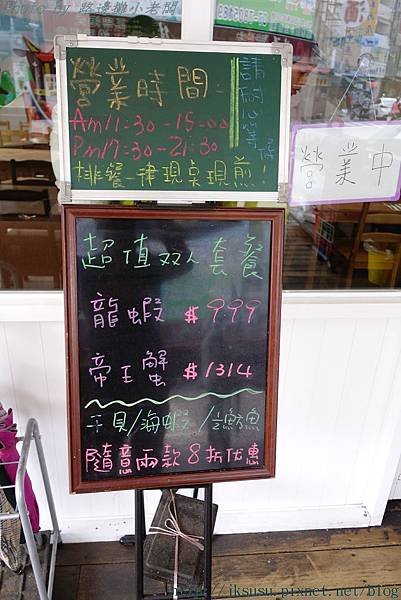 Photo By 路邊攤小老闆
營業時間:
Am11:30-15:00
Pm17:30-21:30
排餐一律現桌現煎!
請耐心等候
營業中
超值双人套餐
龍蝦 $999
帝王蟹 $1314
干貝/海蝦/魚
隨意兩款8折优惠
http://iksusu.pixnet.net/blog